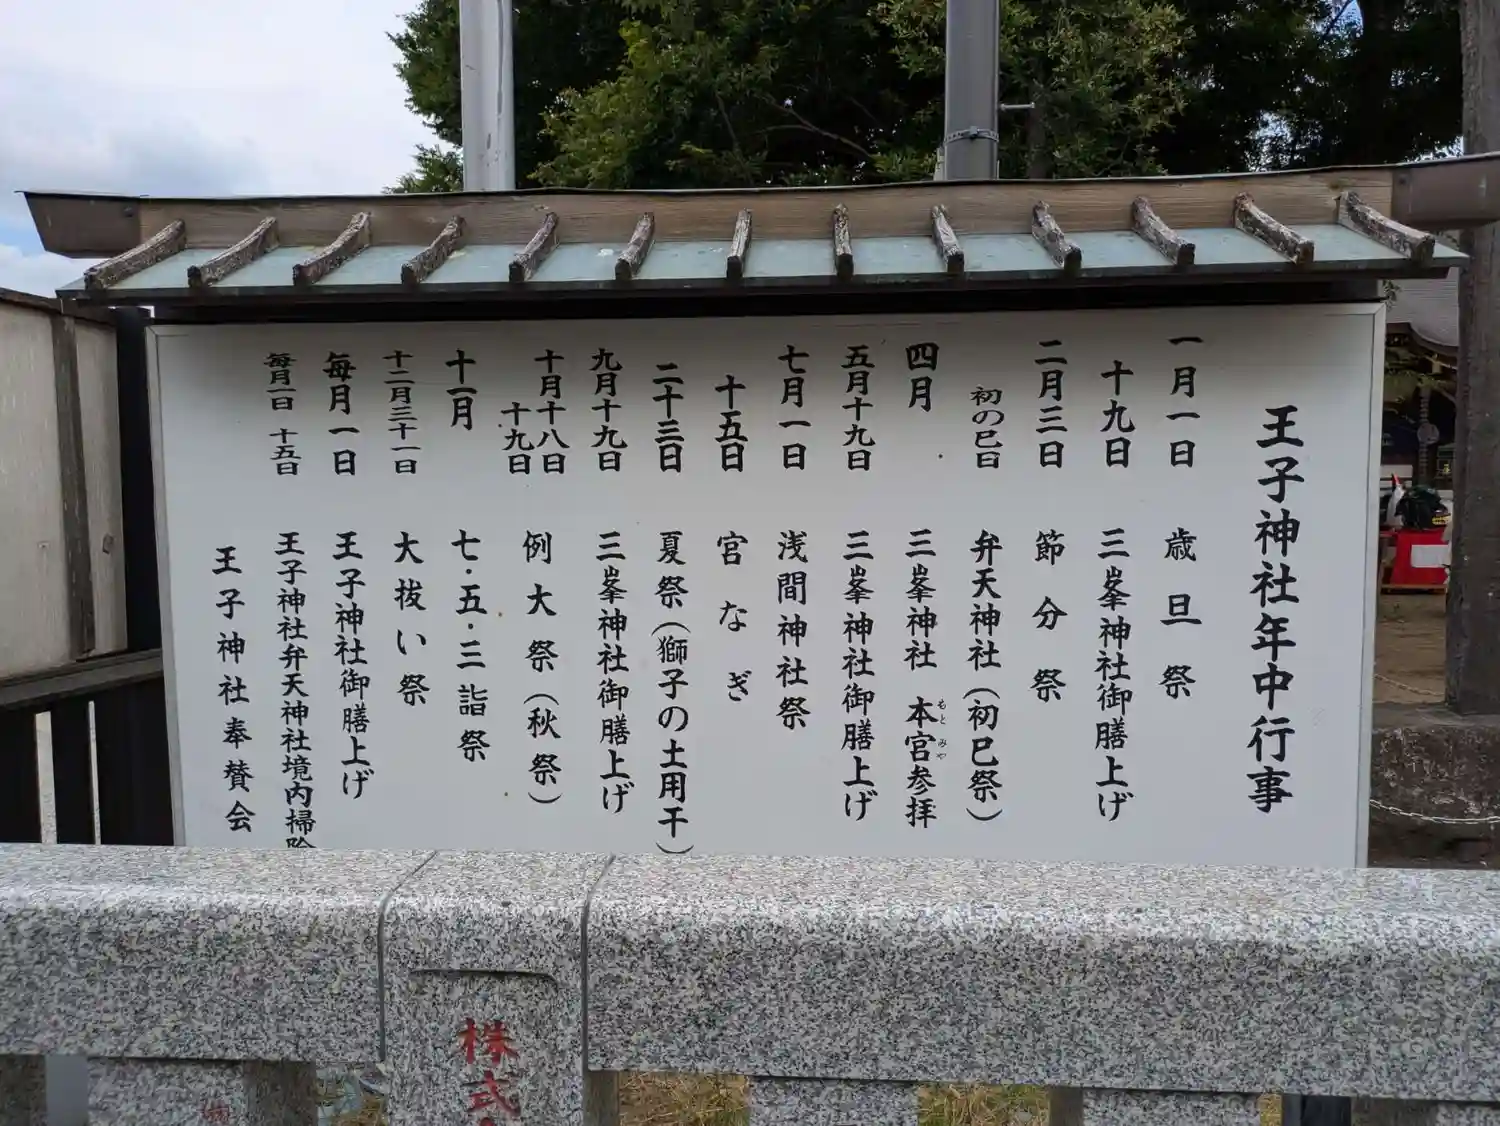 王子神社年中行事
一月一日 歳旦祭
十九日 三峯神社御膳上げ
二月三日 節分祭
初の巳日 弁天神社(初巳祭)
四月 三峯神社 本宮参拝
もと みや
五月十九日 三峯神社御膳上げ
七月一日 浅間神社祭
十五日 宮なぎ
二十三日 夏祭(獅子の土用干)
九月十九日 三峯神社御膳上げ
十月十八日
十九日 例大祭(秋祭)
十一月 七・五・三詣祭
十二月三十一日 大抜い祭
毎月一日 王子神社御膳上げ
毎月一日 十五日 王子神社弁天神社境内掃除
王子神社奉賛会
株式